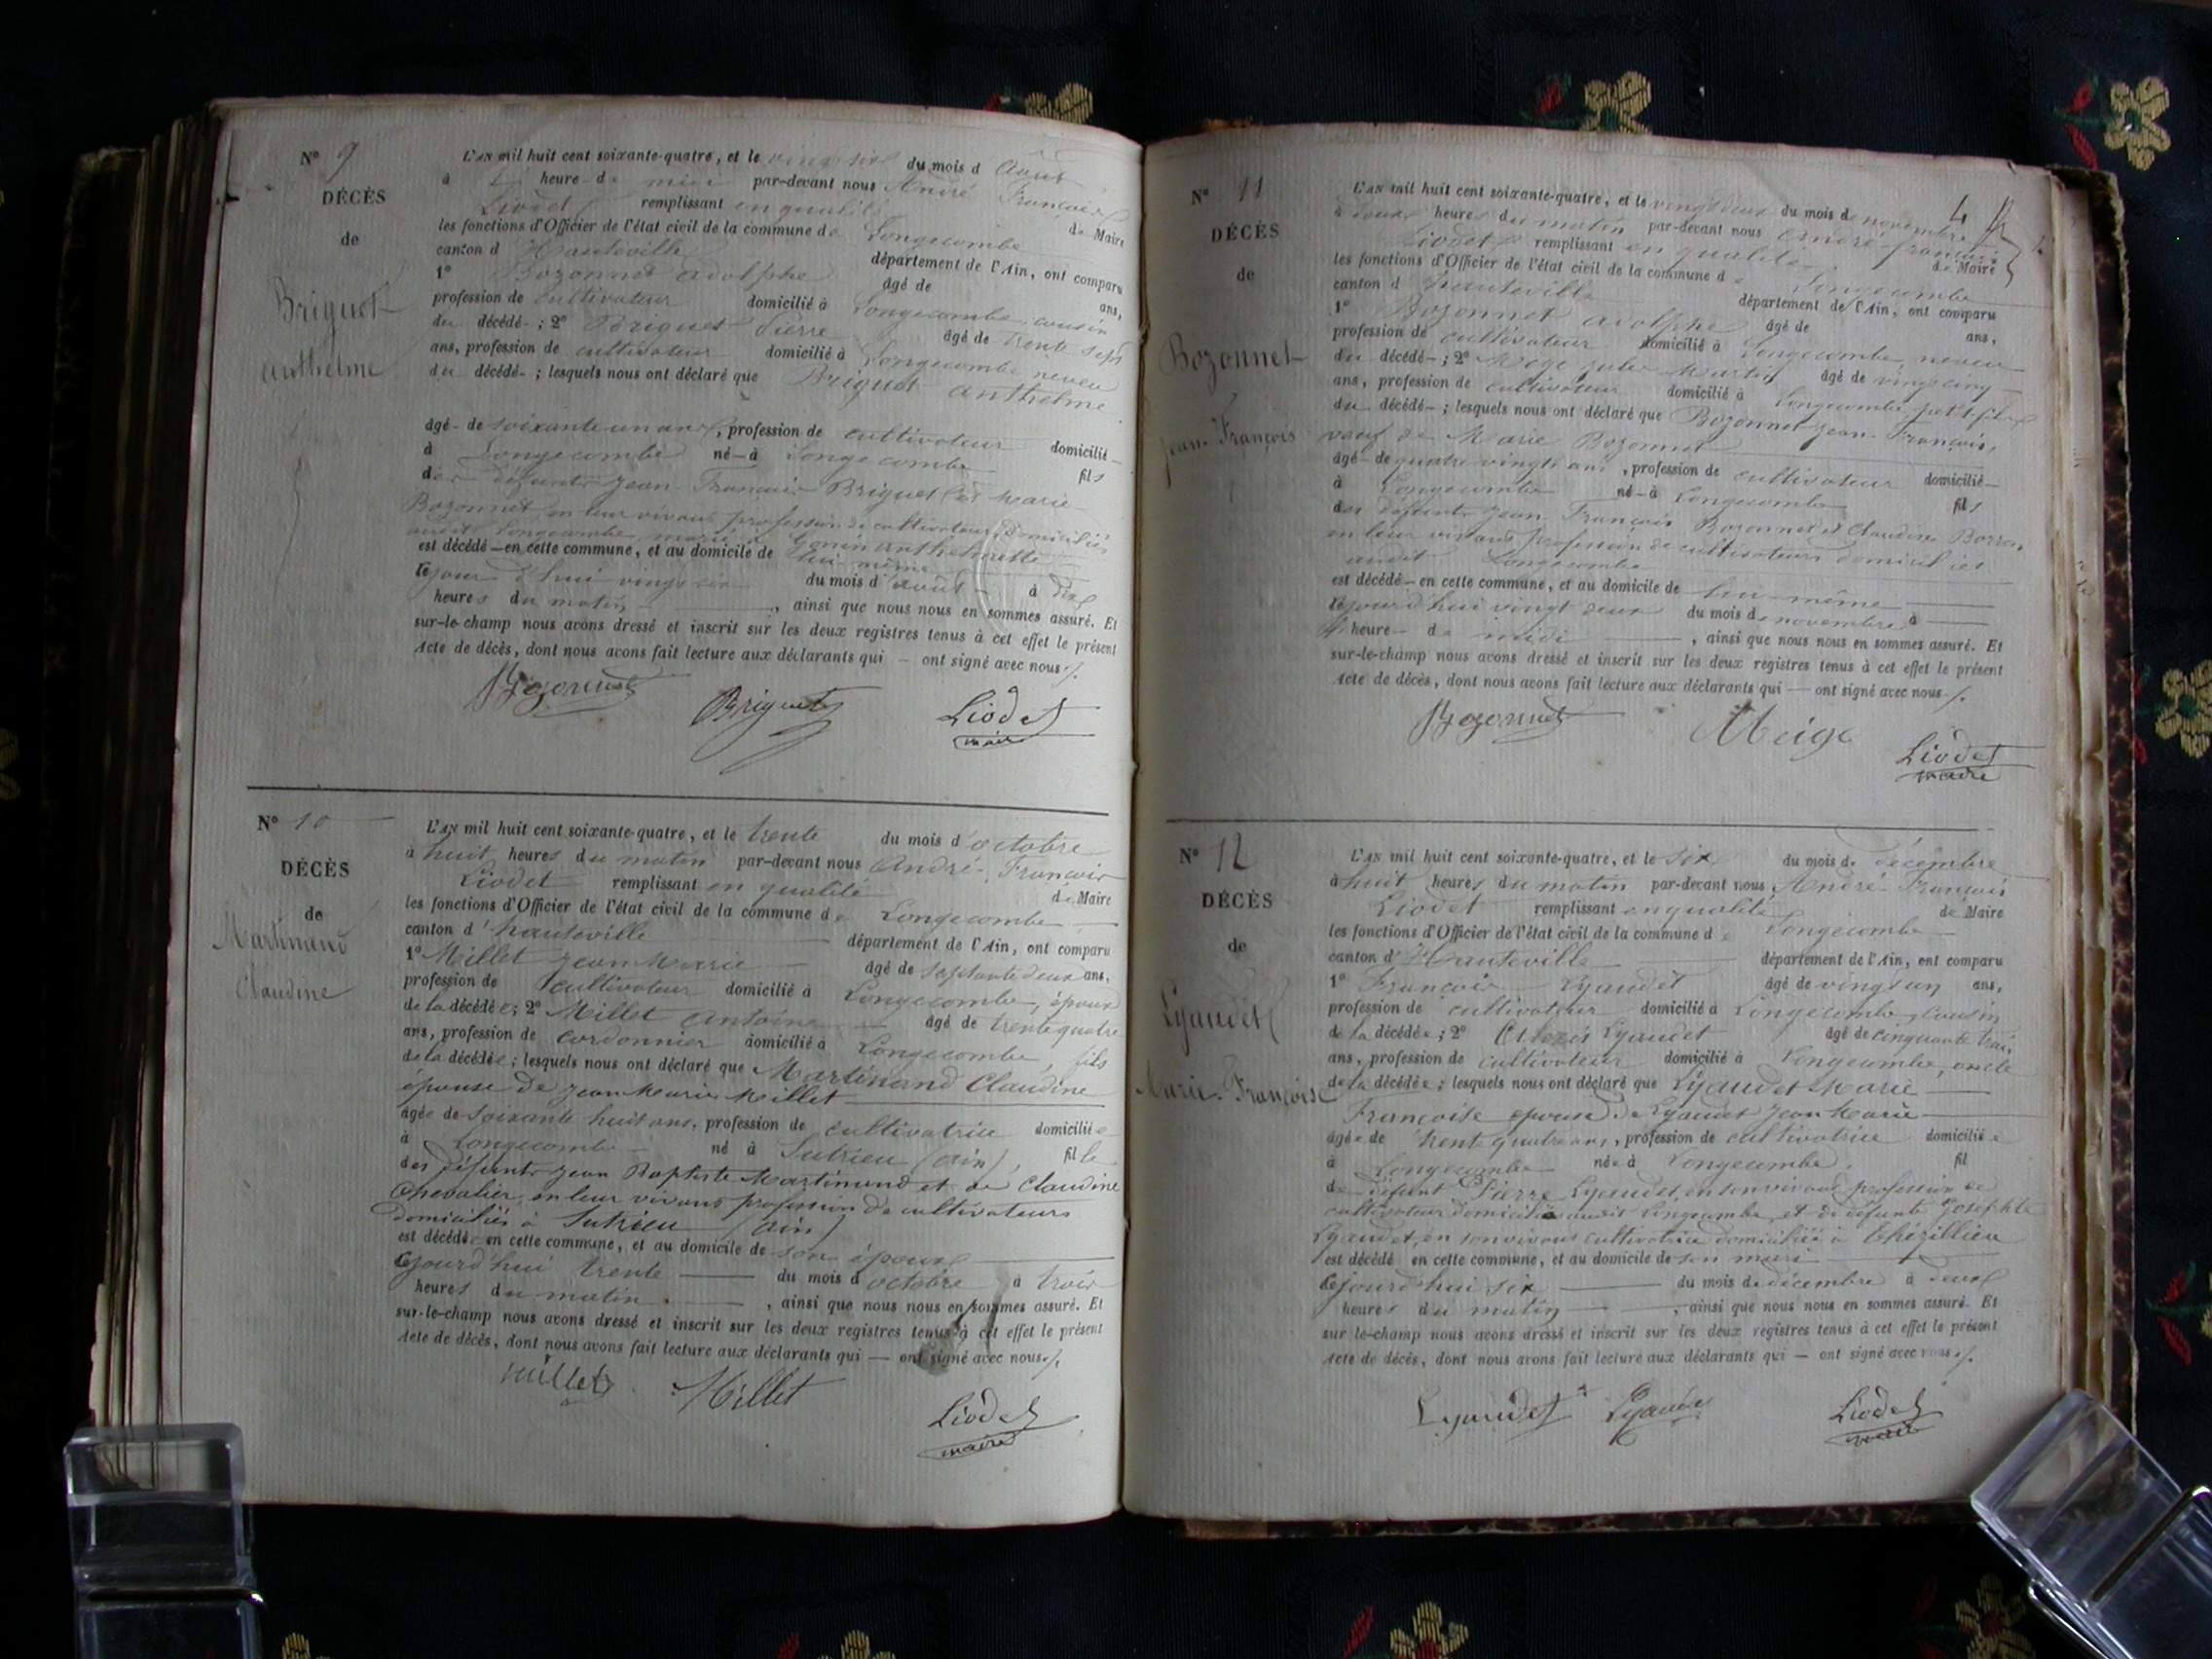 N° 9
DÉCÈS
de
Briguet
anthelme
L'AN mil huit cent soixante-quatre, et le vingt six du mois d'Août
à heure de midi par-devant nous André François
Liodet remplissant en qualité de Maire
les fonctions d'Officier de l'état civil de la commune de Longecombe
canton d'Hauteville département de l'Ain, ont comparu
1° Bozonnet adolphe âgé de ans,
profession de cultivateur domicilié à Longecombe, cousin
du décédé ; 2° Briguet Pierre âgé de trente sept
ans, profession de cultivateur domicilié à Longecombe neveu
du décédé ; lesquels nous ont déclaré que Briguet anthelme
âgé de soixante un ans, profession de cultivateur domicilié
à Longecombe né à Longecombe fils
des défunts Jean François Briguet et de Marie
Bozonnet, en leur vivant profession de cultivateurs domiciliés
audit Longecombe marié à Gonin anthelmette
est décédé en cette commune, et au domicile de lui-même
cejourd'hui vingt six du mois d'août à dix
heures du matin, ainsi que nous nous en sommes assuré. Et
sur-le-champ nous avons dressé et inscrit sur les deux registres tenus à cet effet le présent
Acte de décès, dont nous avons fait lecture aux déclarants qui — ont signé avec nous./.
Bozonnet Briguet Liodet
maire
N° 10
DÉCÈS
de
Martinand
Claudine
L'AN mil huit cent soixante-quatre, et le trente du mois d'octobre
à huit heures du matin par-devant nous André-François
Liodet remplissant en qualité de Maire
les fonctions d'Officier de l'état civil de la commune de Longecombe
canton d'hauteville département de l'Ain, ont comparu
1° Millet Jean Marie âgé de septante deux ans,
profession de cultivateur domicilié à Longecombe, époux
de la décédée ; 2° Millet Antoine âgé de trente quatre
ans, profession de cordonnier domicilié à Longecombe, fils
de la décédée ; lesquels nous ont déclaré que Martinand Claudine
épouse de Jean Marie Millet
âgée de soixante huit ans, profession de cultivatrice domiciliée
à Longecombe né à Sutrieu (ain), fille
des défunts Jean Baptiste Martinand et de Claudine
Chevalier, en leur vivant profession de cultivateurs
domiciliés à Sutrieu (ain)
est décédée en cette commune, et au domicile de son époux
cejourd'hui trente du mois d'octobre à trois
heures du matin, ainsi que nous nous en sommes assuré. Et
sur-le-champ nous avons dressé et inscrit sur les deux registres tenus à cet effet le présent
Acte de décès, dont nous avons fait lecture aux déclarants qui — ont signé avec nous./.
Millet Millet Liodet
maire
4
N° 11
DÉCÈS
de
Bozonnet
Jean-François
L'AN mil huit cent soixante-quatre, et le vingt deux du mois de novembre
à douze heures du matin par-devant nous André-françois
Liodet remplissant en qualité de Maire
les fonctions d'Officier de l'état civil de la commune de Longecombe
canton d'hauteville département de l'Ain, ont comparu
1° Bozonnet adolphe âgé de ans,
profession de cultivateur domicilié à Longecombe, neveu
du décédé ; 2° Mege Martin âgé de vingt cinq
ans, profession de cultivateur domicilié à Longecombe, petit fils
du décédé ; lesquels nous ont déclaré que Bozonnet Jean-François,
veuf de Marie Bozonnet
âgé de quatre vingts ans, profession de cultivateur domicilié
à Longecombe né à Longecombe fils
des défunts Jean François Bozonnet et Claudine
en leur vivant profession de cultivateurs domiciliés
audit Longecombe
est décédé en cette commune, et au domicile de lui-même
cejourd'hui vingt deux du mois de novembre à
heure de midi, ainsi que nous nous en sommes assuré. Et
sur-le-champ nous avons dressé et inscrit sur les deux registres tenus à cet effet le présent
Acte de décès, dont nous avons fait lecture aux déclarants qui — ont signé avec nous./.
Bozonnet Meige Liodet
maire
N° 12
DÉCÈS
de
Lyaudet
Marie-Françoise
L'AN mil huit cent soixante-quatre, et le six du mois de décembre
à huit heures du matin par-devant nous André-François
Liodet remplissant en qualité de Maire
les fonctions d'Officier de l'état civil de la commune de Longecombe
canton d'Hauteville département de l'Ain, ont comparu
1° François Lyaudet âgé de vingt un ans,
profession de cultivateur domicilié à Longecombe, cousin
de la décédée ; 2° Alexis Lyaudet âgé de cinquante trois
ans, profession de cultivateur domicilié à Longecombe, oncle
de la décédée ; lesquels nous ont déclaré que Lyaudet Marie
Françoise épouse de Lyaudet Jean Marie
âgée de trente quatre ans, profession de cultivatrice domiciliée
à Longecombe née à Longecombe. fil
de défunt Pierre Lyaudet, en son vivant profession de
cultivateur domicilié audit Longecombe, et de défunte Josephte
Lyaudet, en son vivant cultivatrice domiciliée à Thézillieu
est décédé en cette commune, et au domicile de son mari
cejourd'hui six du mois de décembre à deux
heures du matin, ainsi que nous nous en sommes assuré. Et
sur-le-champ nous avons dressé et inscrit sur les deux registres tenus à cet effet le présent
Acte de décès, dont nous avons fait lecture aux déclarants qui — ont signé avec nous./.
Lyaudet Lyaudet Liodet
maire